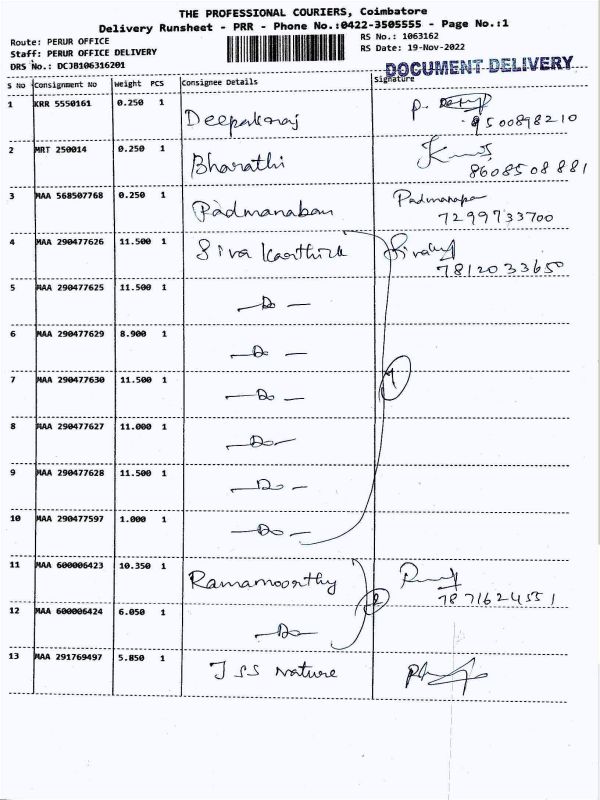 THE PROFESSIONAL COURIERS, Coimbatore
Delivery Runsheet - PRR - Phone No.:0422-3505555 - Page No.:1
Route: PERUR OFFICE RS No.: 1063162
Staff: PERUR OFFICE DELIVERY RS Date: 19-Nov-2022
DRS No.: DCJB106316201 DOCUMENT DELIVERY
S No Consignment No Weight PCS Consignee Details Signature
1 KRR 5550161 0.250 1 Deepakraj P.
9500898210
2 MRT 250014 0.250 1 Bharathi
8608508881
3 MAA 568507768 0.250 1 Padmanaban Padmanapa
7299733700
4 MAA 290477626 11.500 1 Siva Kaarthick
7812033650
5 MAA 290477625 11.500 1 - Do -
6 MAA 290477629 8.900 1 - Do -
7 MAA 290477630 11.500 1 - Do - 7
8 MAA 290477627 11.000 1 - Do -
9 MAA 290477628 11.500 1 - Do -
10 MAA 290477597 1.000 1 - Do -
11 MAA 600006423 10.350 1 Ramamoorthy
7871624551
12 MAA 600006424 6.050 1 - Do - 2
13 MAA 291769497 5.850 1 JSS Nature